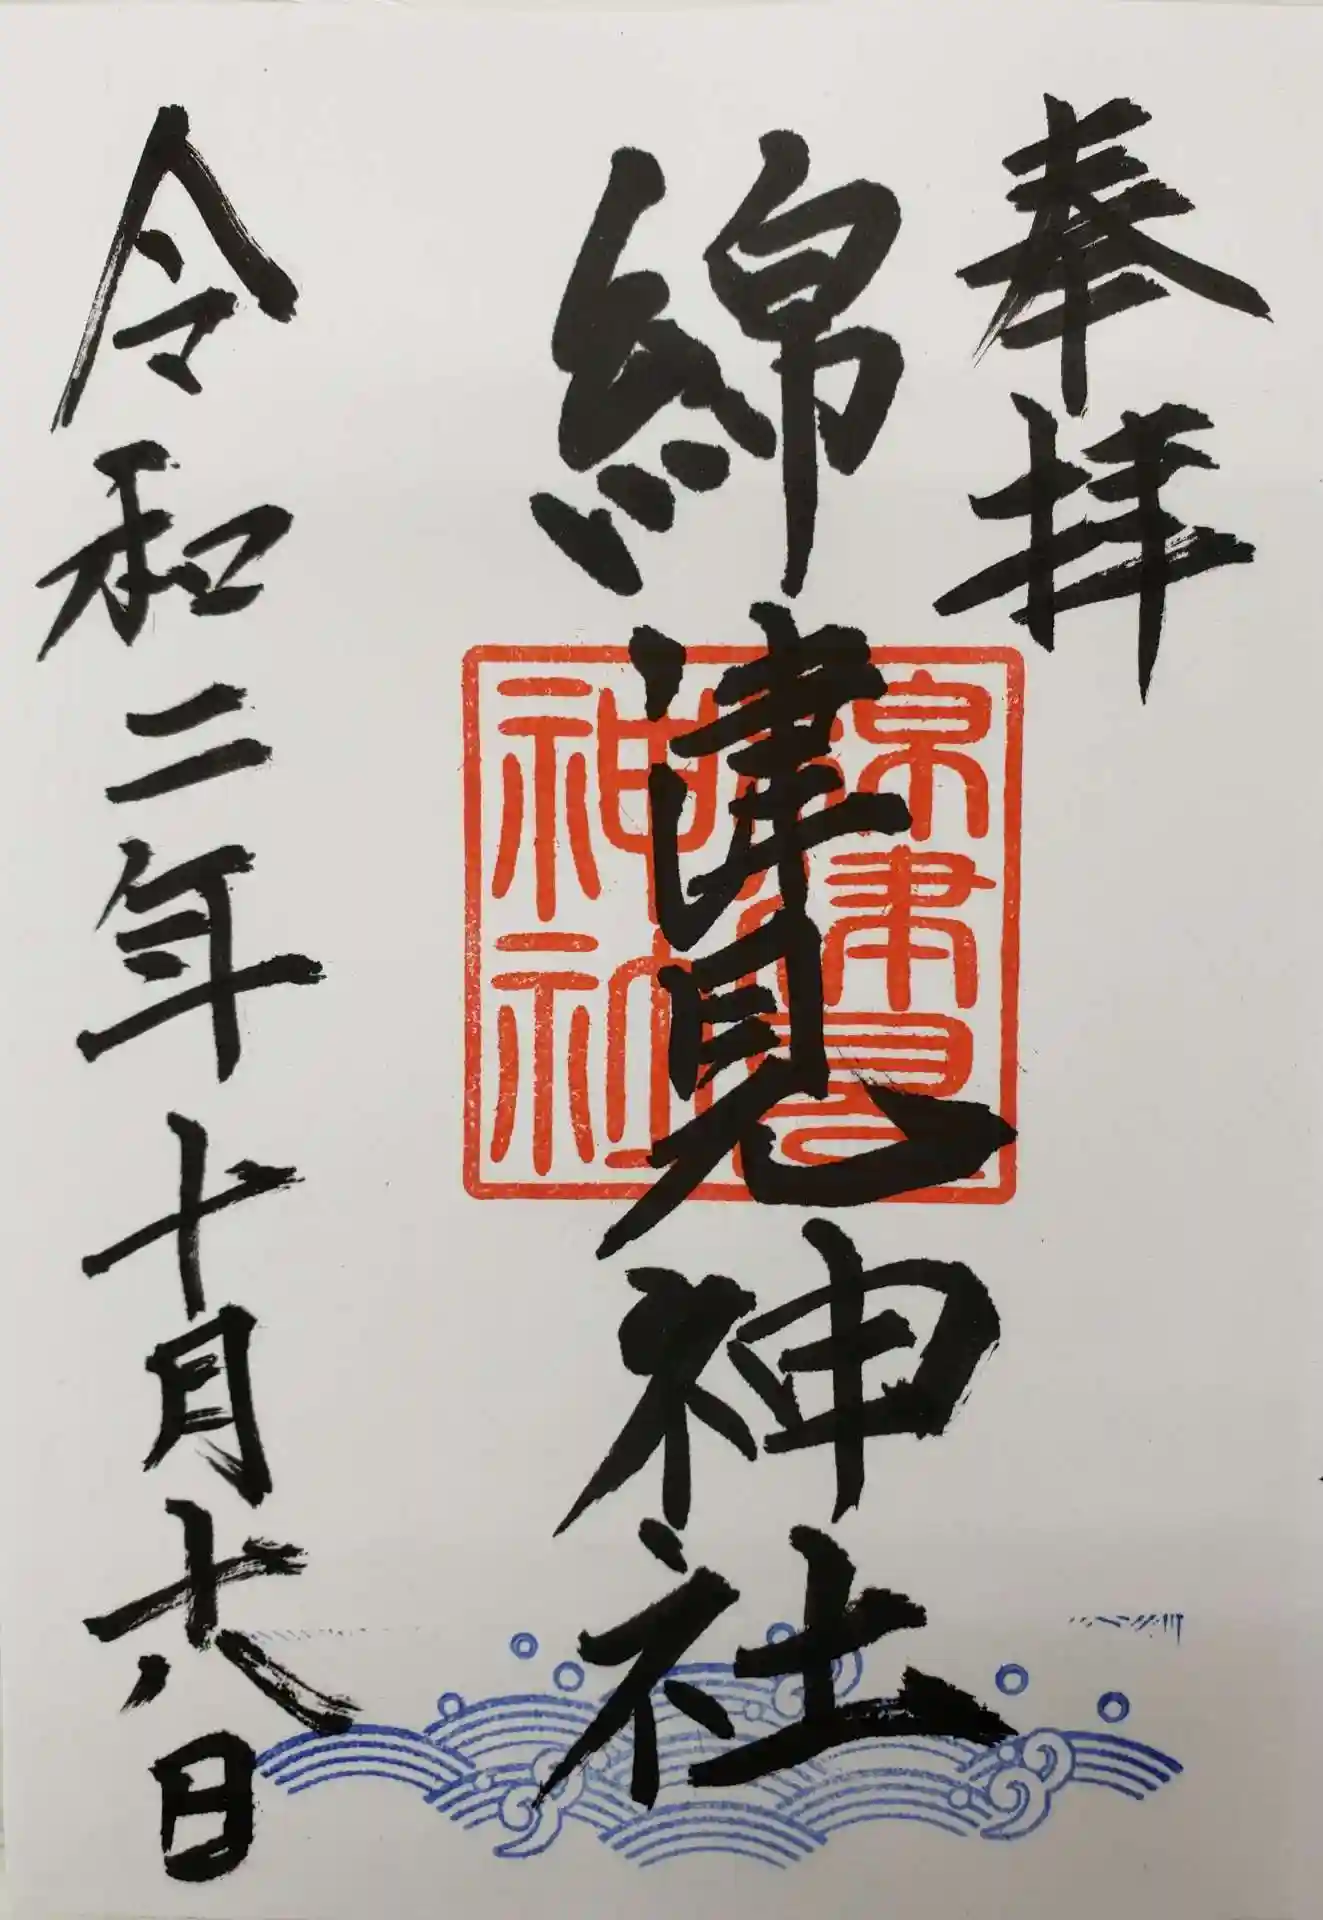 奉拝
綿津見神社
綿津見
神社
令和二年十月十八日